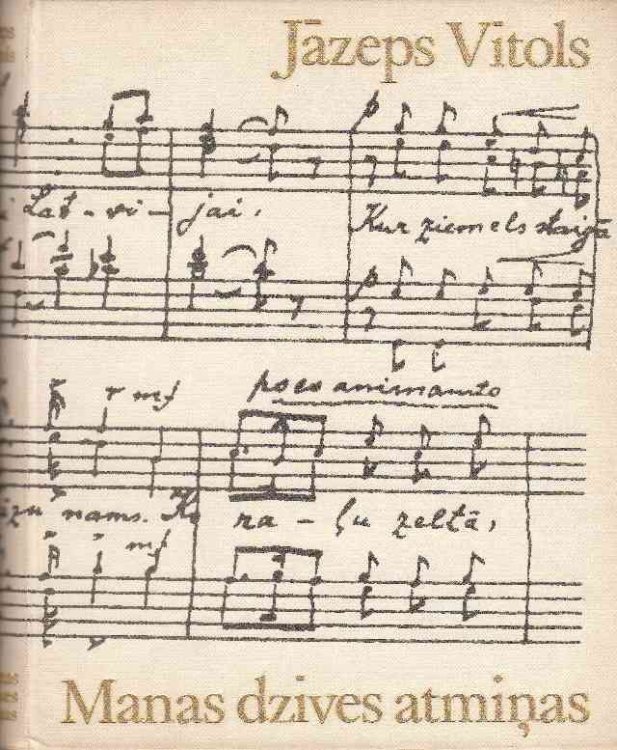 Jāzeps Vītols
Lat-vi-jai. Kur ziemels staigā
mf poco animando
nams. Ko ra-ļu zeltā,
mf
Manas dzīves atmiņas